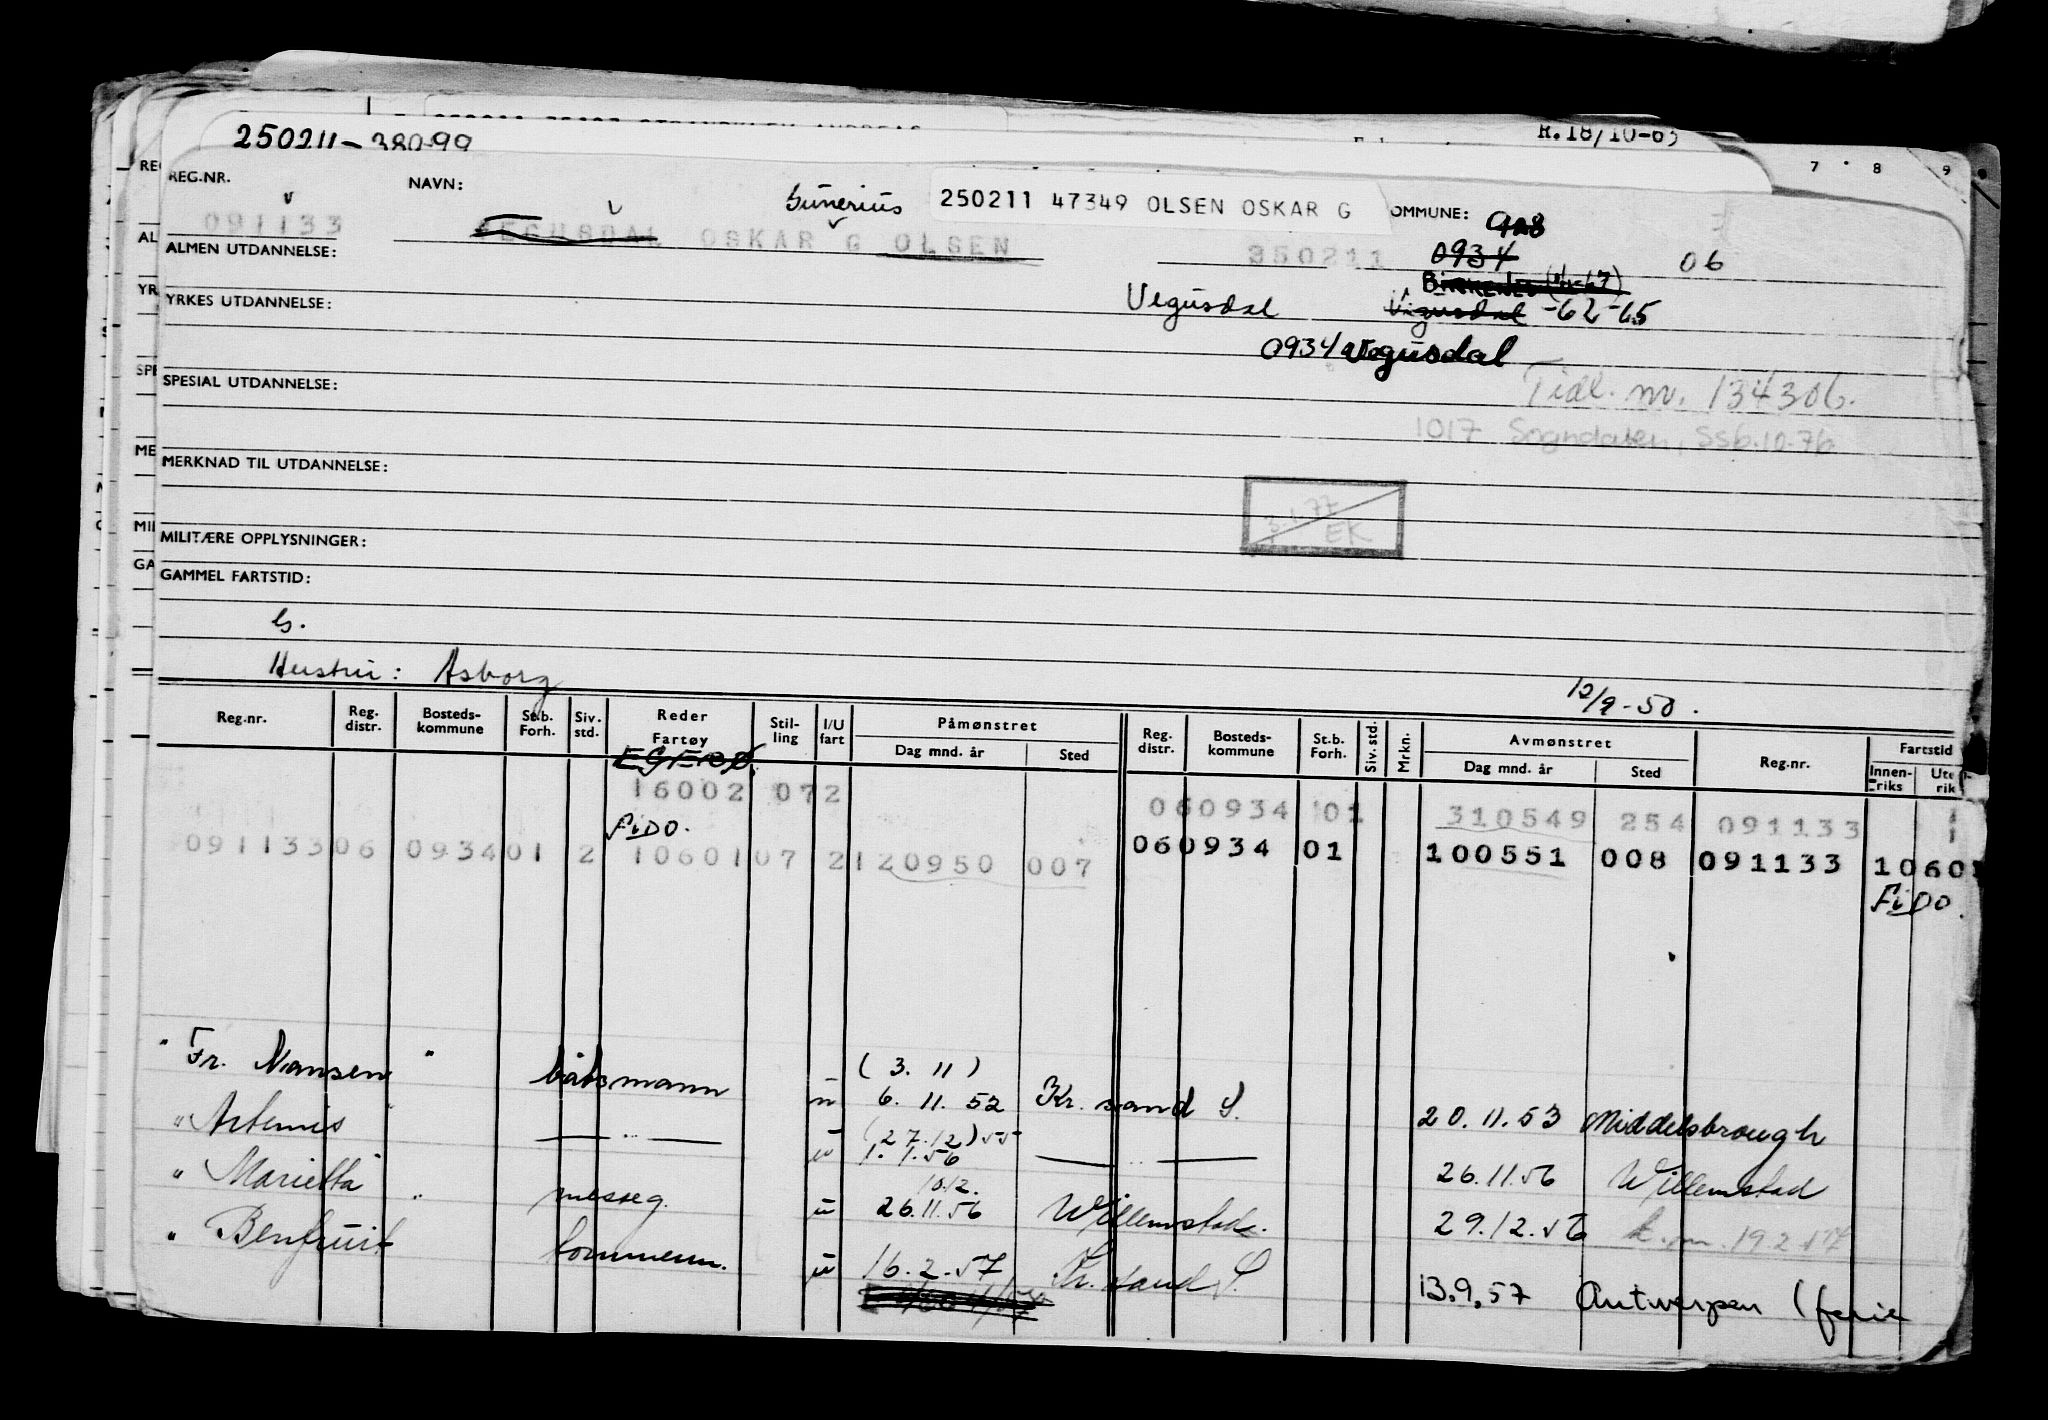 R.18/10-65
250211-38099
7 8 9
REG.NR. NAVN: Gunerius 250211 47349 OLSEN OSKAR G OMMUNE: 928
091133 VEGUSDAL OSKAR G OLSEN 250211 0934 06
ALMEN UTDANNELSE:
BIRKENES (1/1-67)
YRKES UTDANNELSE: Vegusdal Vegusdal -62-65
0934 Vegusdal
SPESIAL UTDANNELSE: Tidl. nr. 134306.
1017 Sogndalen, SSb.10-76
MERKNAD TIL UTDANNELSE:
3.1.77
EK
MILITÆRE OPPLYSNINGER:
GAMMEL FARTSTID:
G.
Hustru: Asborg 12/9-50.
Reg.nr. Reg. distr. Bosteds-kommune St.b. Forh. Siv. std. Reder Fartøy Stil-ling I/U fart Påmønstret Dag mnd. år Sted Reg. distr. Bosteds-kommune St.b. Forh. Siv. std. Mrkn. Avmønstret Dag mnd. år Sted Reg.nr. Fartstid Innen-riks Uten-rik
EGERØ
16002 072 060934 01 310549 254 091133
FIDO.
091133 06 0934 01 2 10601 07 2 120950 007 060934 01 100551 008 091133 1060
FIDO.
" Fr. Nansen " båtsmann u (3.11) 6.11.52 Kr. sand S. 20.11.53 Middelsbrough
" Artemis " — " — u (27.12)55 1.1.56 — " — 26.11.56 Willemstad
" Marietta " messeg. u 10.12. 26.11.56 Willemstad. 29.12.56 k.m. 19.2.57
" Benfruit tømmerm. u 16.2.57 Kr. sand S. 13.9.57 Antwerpen (ferie